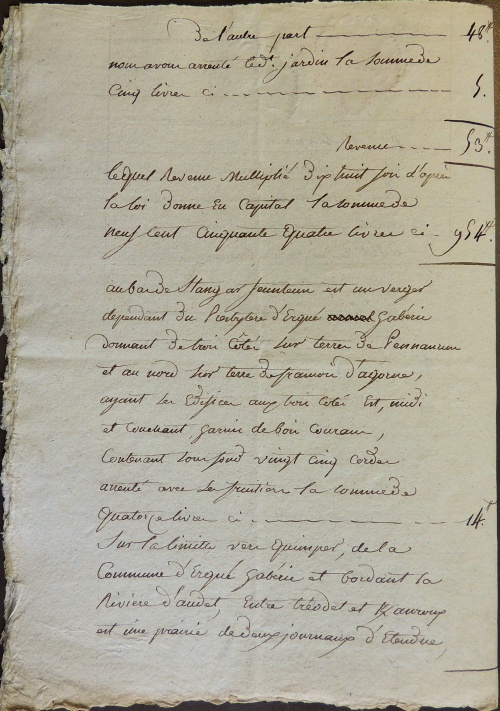 De l'autre part 48 #
nous avons arreté led.t jardin la somme de
Cinq livres ci 5.
Revenu 53 #
lequel Revenu Multiplié Dix huit fois d'après
la loi Donne En Capital la somme de
neuf cent Cinquante Quatre livres ci 954 #
au bas de Stang ar feunteun est un verger
dependant du Presbytere d'Ergué Gabéric
Donnant de trois Côtés sur terres de Pennanrun
et au nord sur terre de francois d'agorne,
ayant ses Edifices aux trois Cotés Est, midi
et Couchant garnis de bois Courans,
Contenant sous fond vingt cinq Cordes
arreté avec ses fruitiers la somme de
Quatorze livres ci 14 #
Sur la limitte vers Quimper, de la
Commune d'Ergué Gabéric et bordant la
Rivière d'audet, Entre tréodet et
est une prairie de deux journaux d'Etendue,